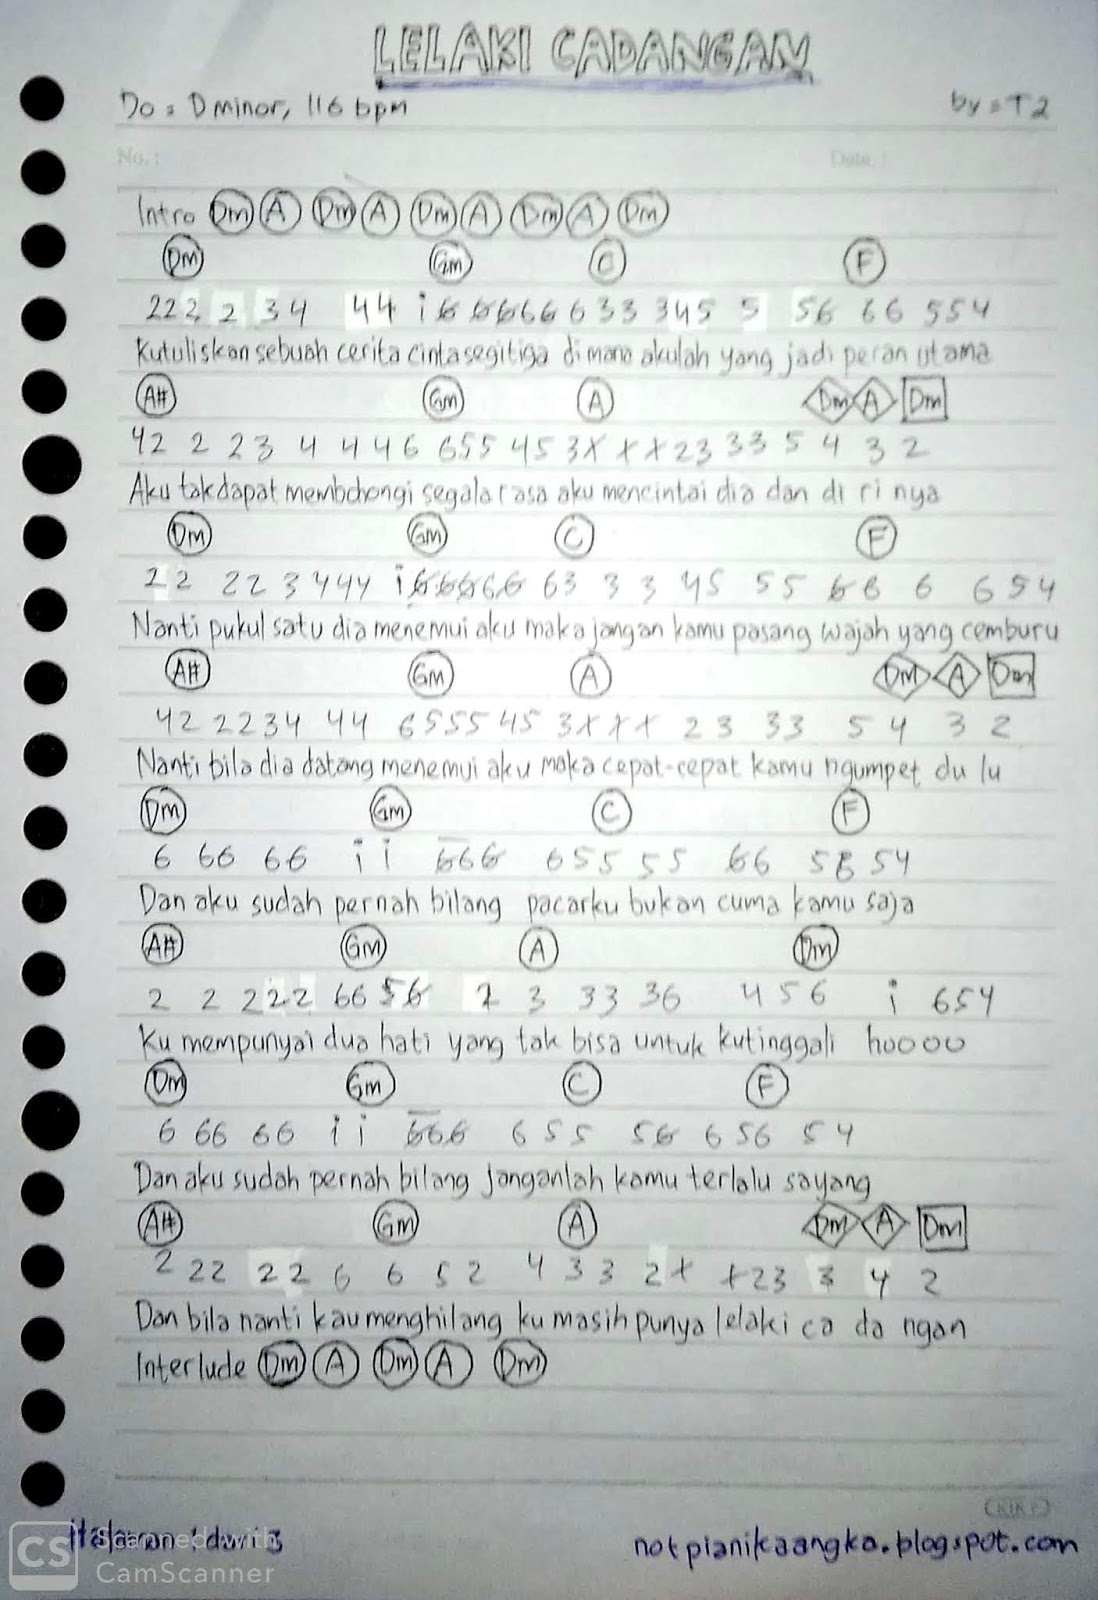 LELAKI CADANGAN
Do = D minor, 116 bpm by = T2
No. : Date. :
Intro Dm A Dm A Dm A Dm A Dm
Dm Gm C F
222 2 34 44 i6 6666 633 345 5 56 66 554
Kutuliskan sebuah cerita cinta segitiga dimana akulah yang jadi peran utama
A# Gm A Dm A Dm
42 2 23 4 4 4 6 655 45 3x x x23 33 5 4 3 2
Aku takdapat membohongi segala rasa aku mencintai dia dan di ri nya
Dm Gm C F
22 22 3 444 i66666 63 3 3 45 55 66 6 654
Nanti pukul satu dia menemui aku maka jangan kamu pasang wajah yang cemburu
A# Gm A Dm A Dm
42 2234 44 6555 45 3x x x 23 33 5 4 3 2
Nanti bila dia datang menemui aku maka cepat-cepat kamu ngumpet du lu
Dm Gm C F
6 66 66 i i 666 655 55 66 56 54
Dan aku sudah pernah bilang pacarku bukan cuma kamu saja
A# Gm A Dm
2 2 2222 66 56 2 3 33 36 456 i 654
Ku mempunyai dua hati yang tak bisa untuk kutinggali hoooo
Dm Gm C F
6 66 66 i i 666 655 56 656 54
Dan aku sudah pernah bilang janganlah kamu terlalu sayang
A# Gm A Dm A Dm
2 22 22 6 6 5 2 4 3 3 2x x23 3 4 2
Dan bila nanti kau menghilang ku masih punya lelaki ca da ngan
Interlude Dm A Dm A Dm
KIKY
halaman 1 dari 3 notpianikaangka.blogspot.com
CS Scanned with
CamScanner